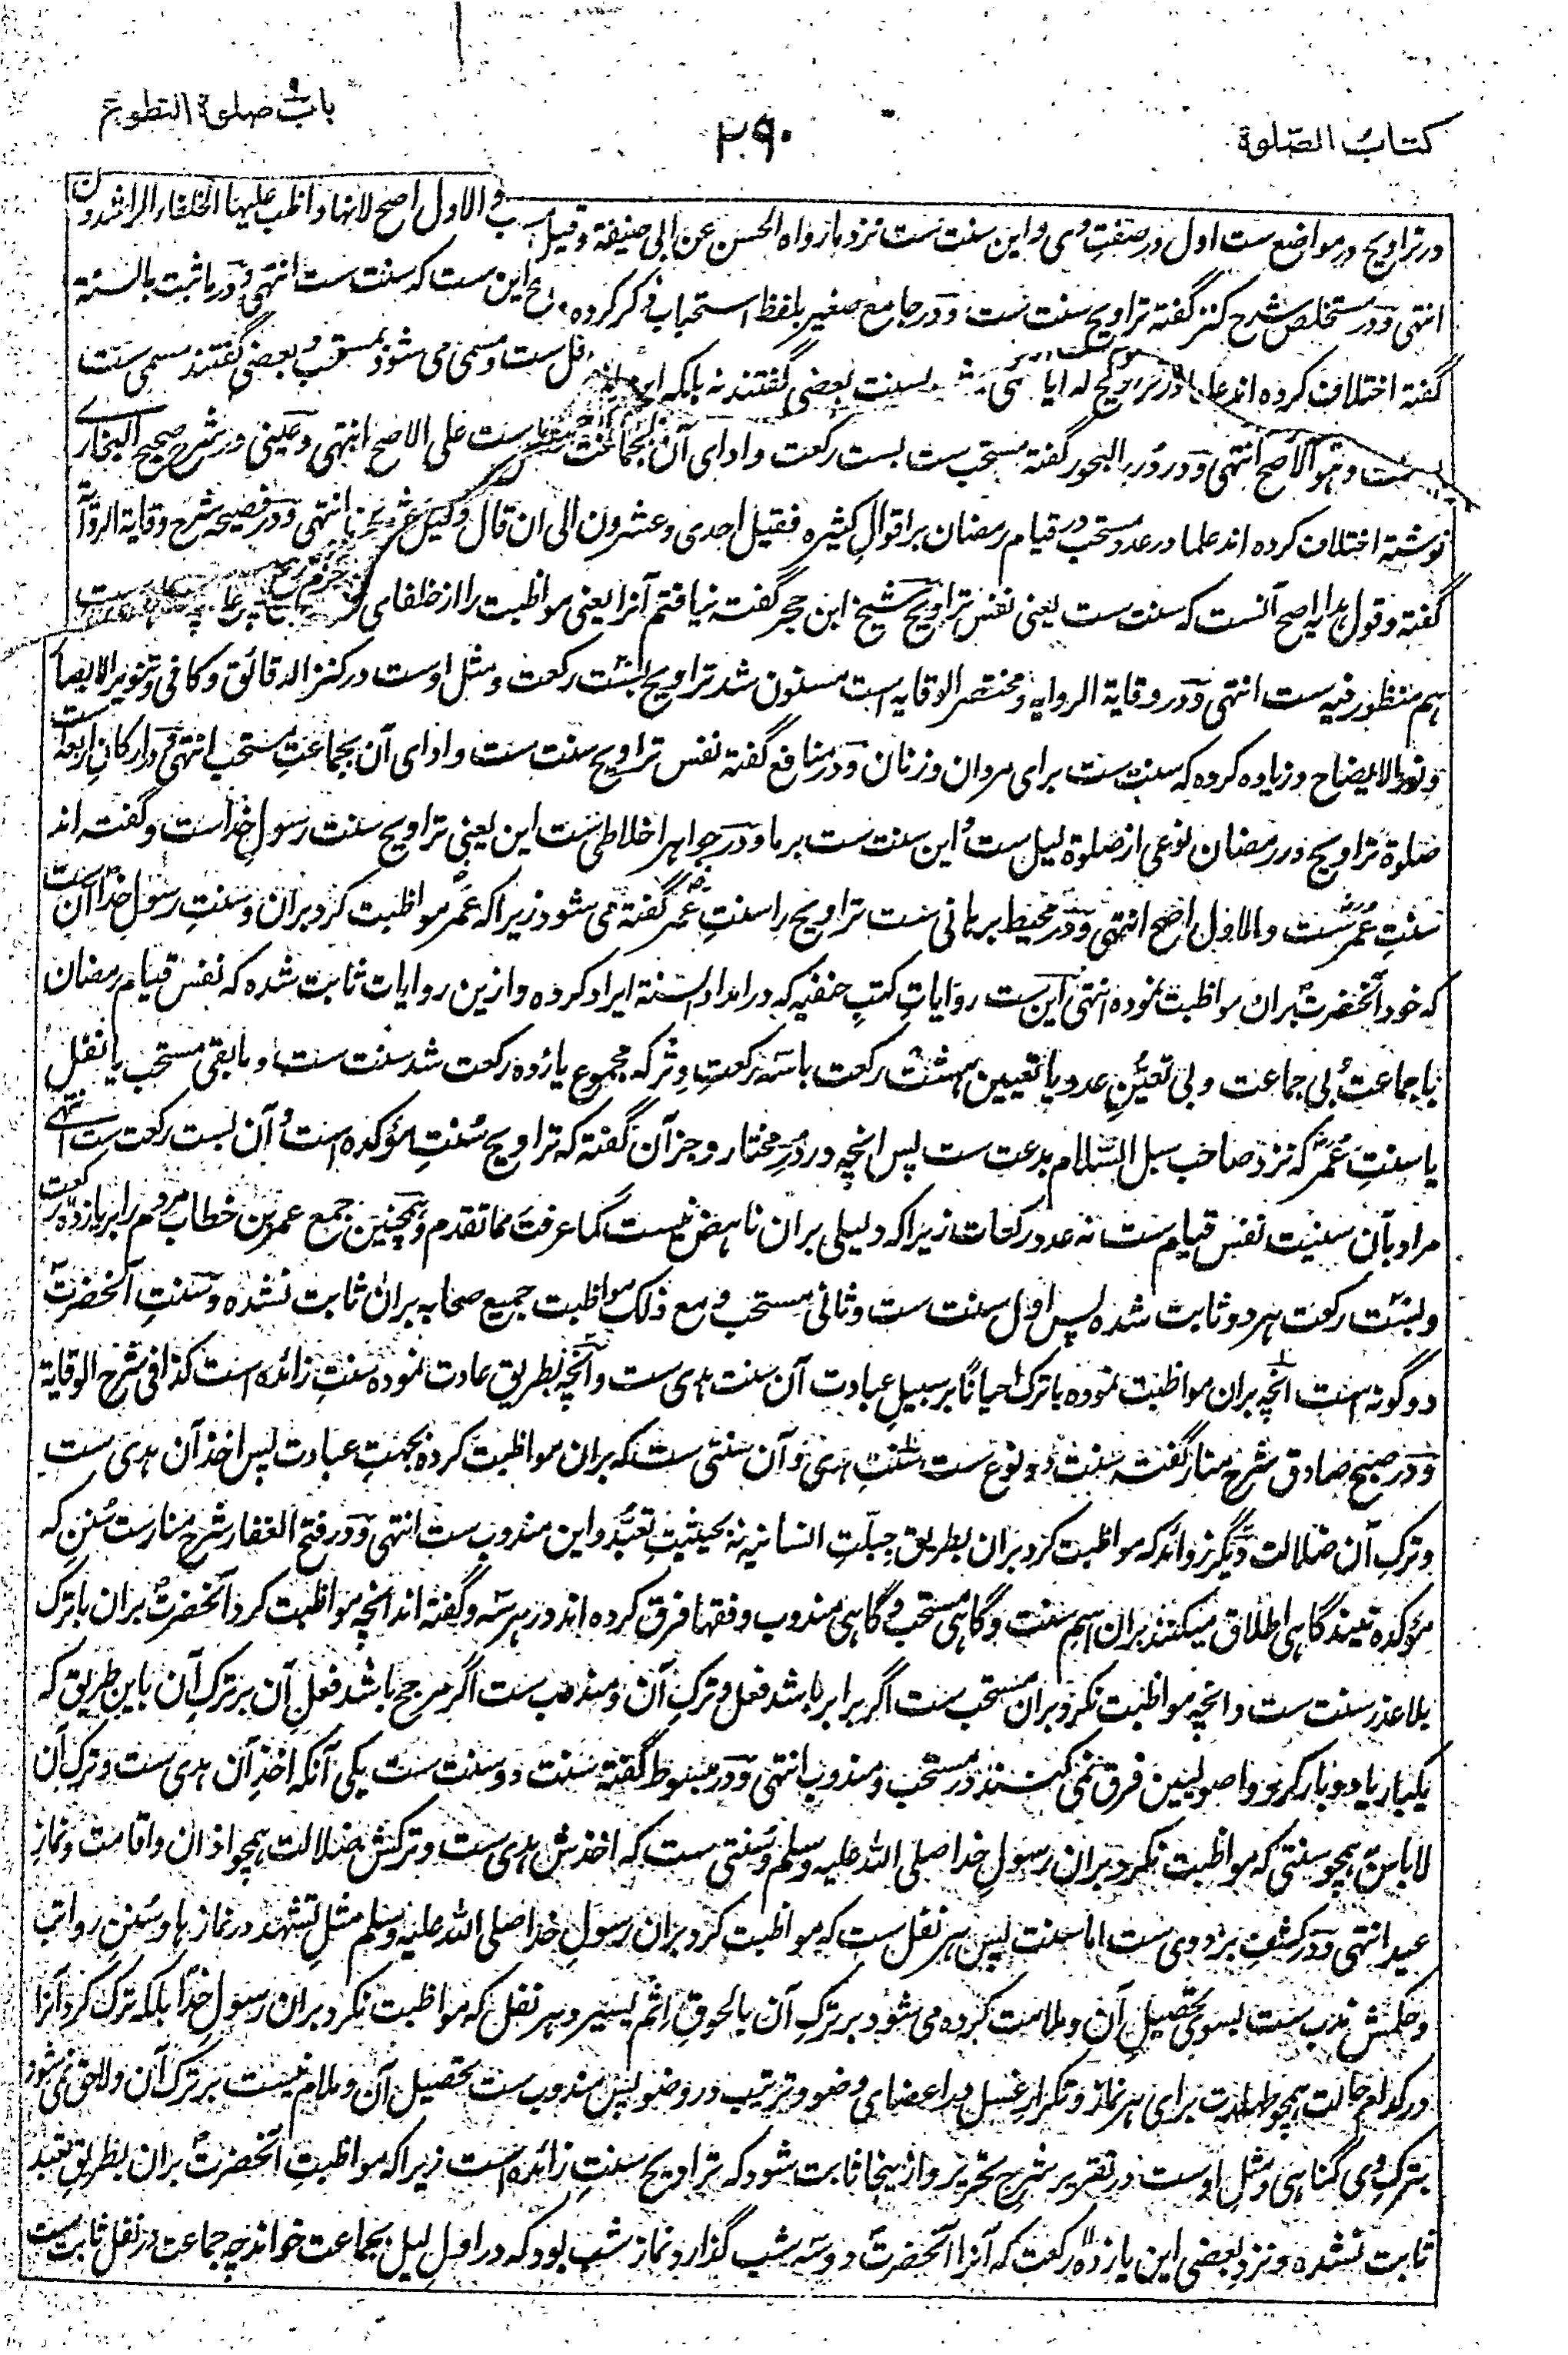 کتاب الصّلوة
۲۹۰
باب صلوة التطوع
در تراویح در مواضع ست اول در صفت وی و این سنت ست نزد ما رواه الحسن عن ابی حنیفة وقیل الاول اصح لانها واظب علیها الخلفاء الراشدون
انتهی و در مستخلص شرح کنز گفته تراویح سنت ست و در جامع صغیر بلفظ استحباب ذکر کرده این ست که سنت ست انتهی و در ما ثبت بالسنة
گفته اختلاف کرده اند علما در تراویح بسنت بعضی گفتند نه بلکه نفل ست و مسمی می شود بمستحب و بعضی گفتند مسمی بسنت
ست و هو الاصح انتهی و در درر البحور گفته مستحب ست بست رکعت و ادای آن بجماعت ست علی الاصح انتهی و عینی در شرح صحیح البخاری
نوشته اختلاف کرده اند علما در عدد مستحب در قیام رمضان بر اقوال کثیره فقیل احدی وعشرون الی ان قال وقیل عشرین انتهی و در فصیحه شرح وقایة الروایة
گفته و قول هدایه اصح آنست که سنت ست یعنی نفس تراویح شیخ ابن حجر گفته نیافتم آنرا یعنی مواظبت را از خلفای
هم منظور فیه ست انتهی و در وقایة الروایه و مختصر الوقایه است مسنون شد تراویح بست رکعت و مثل اوست در کنز الدقائق و کافی و تنویر الابصار
و نور الایضاح و زیاده کرده که سنت ست برای مردان و زنان و در منافع گفته نفس تراویح سنت ست و ادای آن بجماعت مستحب انتهی و در ارکان اربعه است
صلوة تراویح در رمضان نوعی از صلوة لیل ست و این سنت ست بر ما و در جواهر اخلاطی ست این یعنی تراویح سنت رسول خداست و گفته اند
سنت عمر ست والاول اصح انتهی و در محیط برهانی ست تراویح را سنت عمر گفته می شود زیرا که عمر مواظبت کرد بران و سنت رسول خدا آن ست
که خود آنحضرت بران مواظبت نموده انتهی این ست روایات کتب حنفیه که در امداد السنة ایراد کرده و ازین روایات ثابت شده که نفس قیام رمضان
با جماعت و بی جماعت و بی تعین عدد یا تعیین هشت رکعت با سه رکعت وتر که مجموع یازده رکعت شد سنت ست و ما بقی مستحب یا نفل
یا سنت عمر که نزد صاحب سبل السّلام بدعت ست پس انچه در در مختار و جز آن گفته که تراویح سنت مؤکده است و آن بست رکعت ست انتهی
مراد بآن سنیت نفس قیام ست نه عدد رکعات زیرا که دلیلی بران ناهض نیست کما عرفت مما تقدم و همچنین جمع عمر بن خطاب مردم را بر یازده رکعت
و بست رکعت هر دو ثابت شده پس اول سنت ست و ثانی مستحب و مع ذلک مواظبت جمیع صحابه بران ثابت نشده و سنت آنحضرت
دو گونه است آنچه بران مواظبت نموده با ترک احیاناً بر سبیل عبادت آن سنت هدی ست و آنچه بطریق عادت نموده سنت زائده است کذا فی شرح الوقایة
و در صبح صادق شرح منار گفته سنت دو نوع ست سنت هدی و آن سنتی ست که بران مواظبت کرده بجهت عبادت پس اخذ آن هدی ست
و ترک آن ضلالت دیگر زوائد که مواظبت کرد بران بطریق جبلّت انسانیه نه بحیثیت تعبّد و این مندوب ست انتهی و در فتح الغفار شرح منار ست سنن که
مؤکده نیند گاهی اطلاق میکنند بران اسم سنت و گاهی مستحب و گاهی مندوب و فقها فرق کرده اند در هر سه و گفته اند انچه مواظبت کرد آنحضرت بران با ترک
بلا عذر سنت ست و انچه مواظبت نکرد بران مستحب ست اگر برابر باشد فعل و ترک آن و مندوب ست اگر مرجح باشد فعل آن بر ترک آن باین طریق که
یکبار یا دو بار کرد و اصولیین فرق نمی کنند در مستحب و مندوب انتهی و در مبسوط گفته سنت دو سنت ست یکی آنکه اخذ آن هدی ست و ترک آن
لا باس همچو سنتی که مواظبت نکرد بران رسول خدا صلی الله علیه وسلم و سنتی ست که اخذش هدی ست و ترکش ضلالت همچو اذان و اقامت و نماز
عید انتهی و در کشف بزدوی ست اما سنت پس هر نفل ست که مواظبت کرد بران رسول خدا صلی الله علیه وسلم مثل تشهد در نمازها و سنن رواتب
و حکمش ندب ست بسوی تحصیل آن و ملامت کرده می شود بر ترک آن با لحوق اثم یسیر و هر نفل که مواظبت نکرد بران رسول خدا بلکه ترک کرد آنرا
در کدام حالت همچو طهارت برای هر نماز و تکرار غسل در اعضای وضو و ترتیب در وضو پس مندوب ست تحصیل آن و ملام نیست بر ترک آن و لاحق نمی شود
بترک وی گناهی و مثل اوست در تقریر شرح تحریر و ازینجا ثابت شود که تراویح سنت زائده است زیرا که مواظبت آنحضرت بران بطریق تعبد
ثابت نشده و نزد بعضی این یازده رکعت که آنرا آنحضرت دو سه شب گذارد نماز شب بود که در اول لیل بجماعت خواند چه جماعت در نفل ثابت ست